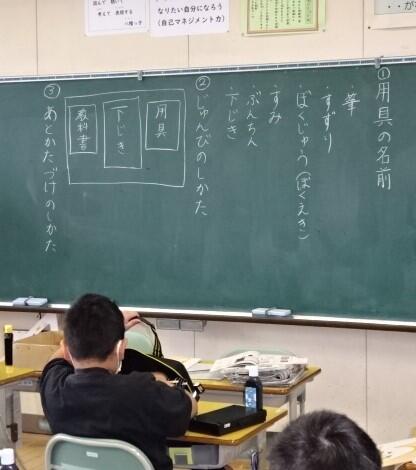 ①用具の名前
・筆
・すずり
・ぼくじゅう(ぼくえき)
・すみ
・ぶんちん
・下じき
②じゅんびのしかた
用具
下じき
教科書
③あとかたづけのしかた
なりたい自分になろう
(自己マネジメント力)
考えて 表現する